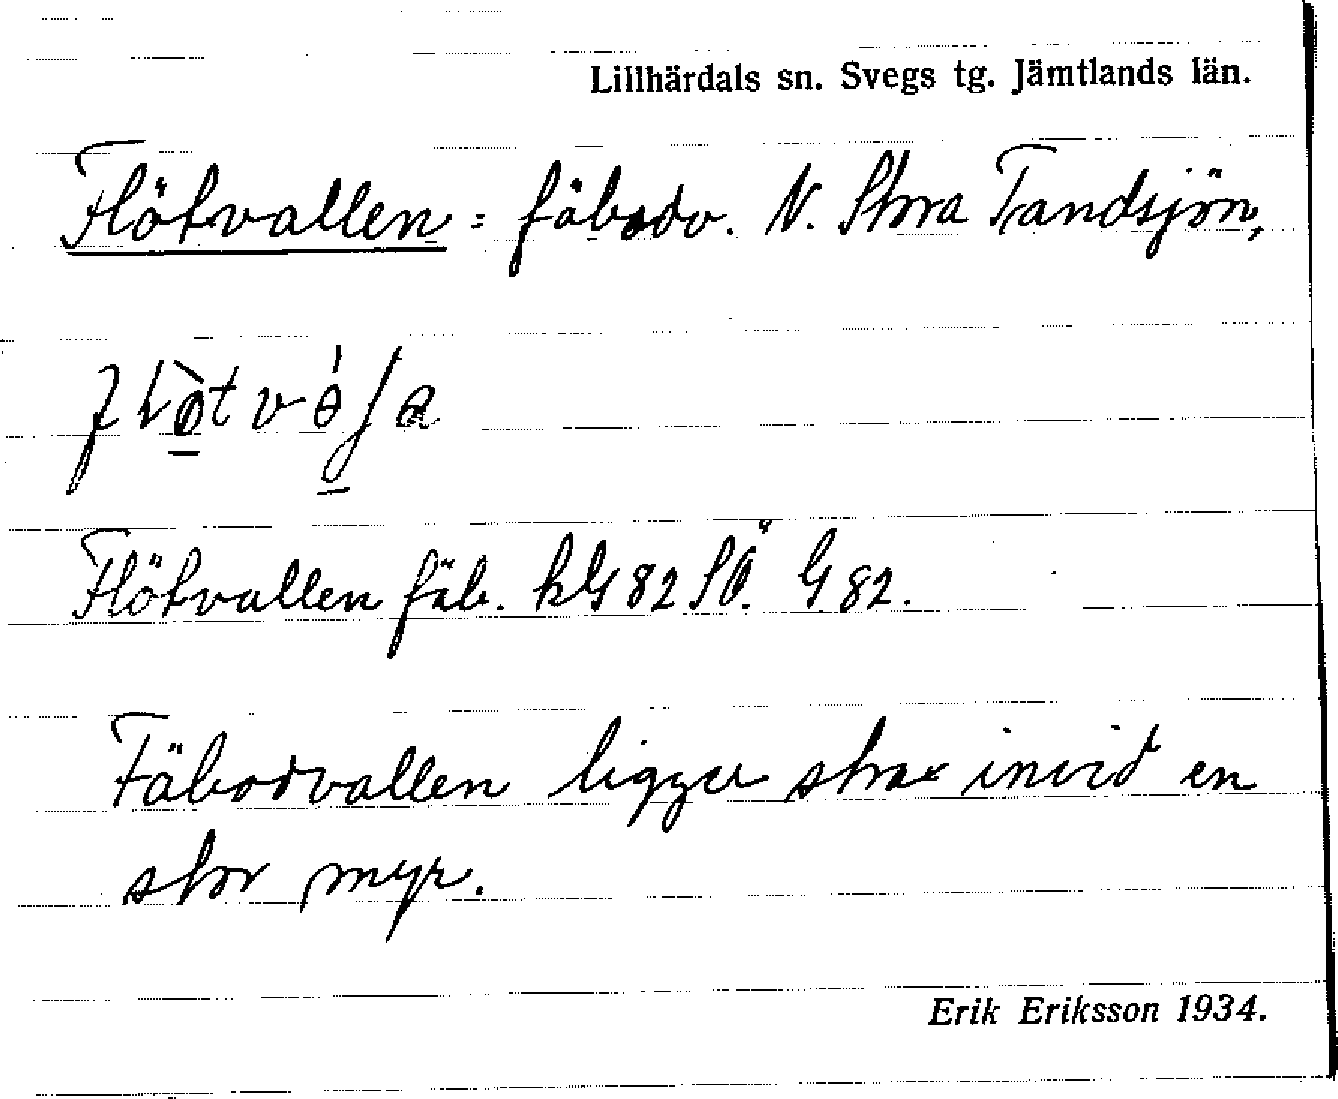 Lillhärdals sn. Svegs tg. Jämtlands län.
Flötvallen = fäbodv. N. Stora Tandsjön,
Flötvallen fäb. kG 82 SÖ. G 82.
Fäbodvallen ligger strax invid en
stor myr.
Erik Eriksson 1934.